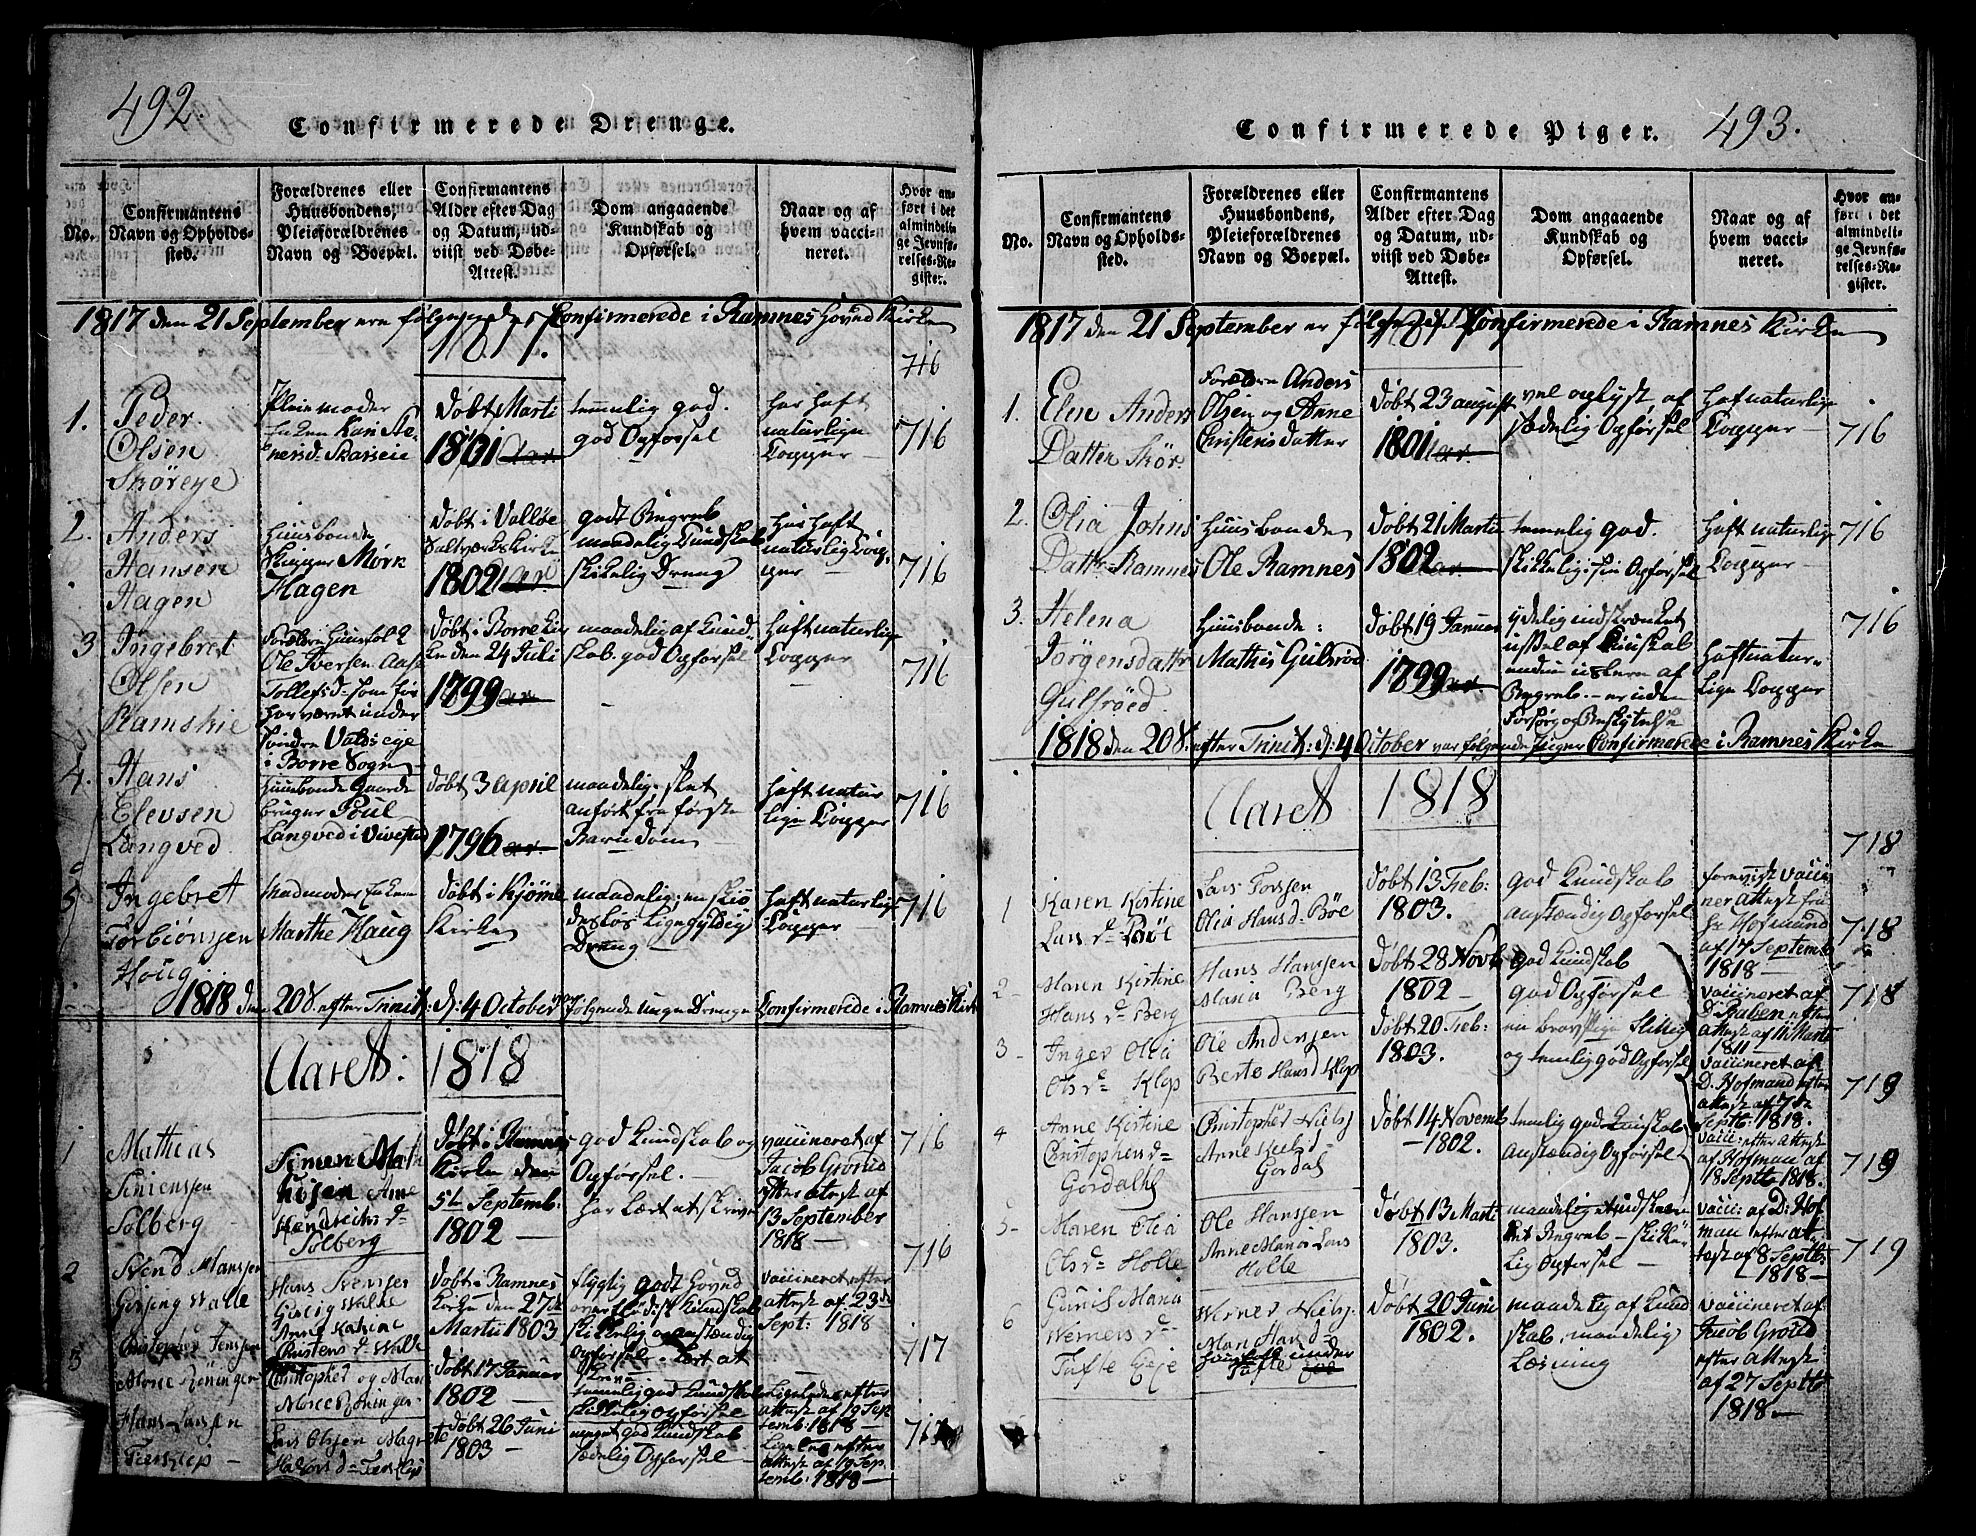 492.
Confirmerede Drenge.
No.
Confirmantens Navn og Opholds-sted.
Forældrenes eller Huusbondens, Pleieforældrenes Navn og Boepæl.
Confirmantens Alder efter Dag og Datum, ud-viist ved Døbe-Attest.
Dom angaaende Kundskab og Opførsel.
Naar og af hvem vacci-neret.
Hvor an-ført i det almindeli-ge Jevnfø-relses-Re-gister.
1817 den 21 September ere følgende Confirmerede i Ramnes Hoved Kirke
1817.
716
1. Peder Olsen Skøreye
Pleiemoder Enken Kari
Døbt Marti 1801
temmelig god. god Opførsel
har haft naturlige Kopper
716
2. Anders Hansen Hagen
Huusbonde Skipper Mørk Hagen
Døbt i Valløe Saltværks Kirke 1802
godt Begreb maadelig Kundskab skikkelig Dreng
har haft naturlig Kopper
716
3 Ingebret Olsen Ramskie
Forældre Huusfolk Ole Iversen Aase Tollefsd. som før har været under Søndre Valdseye i Borre Sogn
Døbt i Borre Kirken den 24 Juli 1799
maadelig af Kundskab. god Opførsel
haft naturlige Kopper
716
4. Hans Elevsen Langved
Huusbonde Gaardbruger Poul Langved i Vivestad
Døbt 3 april 1796
maadelig. slet anført fra første Barndom
haft naturlige Kopper
716
5 Ingebret Torbiønsen Houg
Madmoder Enken Marthe Haug
Døbt i Kjømne Kirke
maadelig; en skiødesløs Ligegyldig Dreng
haft naturlige Kopper
716
1818 den 20 S. efter Trinit: d: 4 October Følgende unge Drenge Confirmerede i Ramnes Kirke
Aaret: 1818
1 Mathias Simensen Solberg
Simen Mathisen Anne Hendrichsd Solberg
Døbt i Ramnes Kirke den 5te Septemb: 1802
god Kundskab og Opførsel. har Lært at skrive
vaccineret af Jacob Grorud efter attest af 13 September 1818
716
2 Svend Hanssen Gising Walle
Hans Svensen Gising Walle Anne Katrine Christens d Walle
Døbt i Ramnes Kirke den 27de Martii 1803
godt Kundskab skikkelig og anstændig Opførsel. Lært at skrive
vaccineret efter attest af 23de Sept: 1818
716
3 Christopher Jenssen
Christopher og Mari
Døbt 17 Januar 1802
temmelig god Kundskab skikkelig Opførsel
Ligeledes efter attest af 19 Septemb: 1818
717
Hans Larsen
Lars Olssen
Døbt 26 Juni 1803
meget god Kundskab sædelig Opførsel
Lige efter attest af 19 Septemb: 1818
717
Confirmerede Piger.
493.
No.
Confirmantens Navn og Opholds-sted.
Forældrenes eller Huusbondens, Pleieforældrenes Navn og Boepæl.
Confirmantens Alder efter Dag og Datum, ud-viist ved Døbe-Attest.
Dom angaaende Kundskab og Opførsel.
Naar og af hvem vacci-neret.
Hvor an-ført i det almindeli-ge Jevnfø-relses-Re-gister.
1817 den 21 September er følgende Confirmerede i Ramnes Kirke
1. Elen Anders Datter Skør
Forældre Anders Olsen og Anne Christensdatter
Døbt 23 august 1801
vel oplyst af sædelig Opførsel
haft naturlige Kopper
716
2. Olia Johns Datter Ramnes
Huusbonde Ole Ramnes
Døbt 21 Marti 1802
temelig god. skikkelig i sin Opførsel
haft naturlige Kopper
716
3. Helena Jørgensdatter Gulsrøed
Huusbonde: Mathis Gulsrød
Døbt 19 Januar 1799
ydelig indskrænket ussel af Kundskab Begreb - er uden Forsørg og Beskyttelse
haft naturlige Kopper
716
1818 den 20 S. efter Trinit: d: 4 October var følgende Piger Confirmerede i Ramnes Kirke
Aaret 1818
718
1 Karen Kirstine Lars d. Böe
Lars Olia Hans d. Böe
Døbt 13 Feb: 1803.
god Kundskab anstændig Opførsel
foreviist Vacciner Attest fra Hr Hofmand af 17 Septemb 1818
718
2 Maren Kirstine Hans d. Berg
Hans Hanssen Maria Berg
Døbt 28 Novb 1802
god Kundskab god Opførsel
vaccineret af D. efter attest af 11 Marts 1811
718
3 Inger Olia Ols d. Klop
Ole Anderssen Berte Hans d Klop
Døbt 20. Feb: 1803.
en brav Pige flittig og temlig god Opførsel
vaccineret af D. Hofmand efter attest af 7de Septb. 1818.
719
4 Anne Kirstine Christophers d. Gordahl
Christopher Niels Anne Gordal
Døbt 14 Novemb 1802.
temlig god Kundskab anstændig Opførsel
vacci: efter Attest af Hofman af 18 Septb 1818.
719
5 Maren Olia Ols d. Holle
Ole Hanssen Anne Maria Lars Holle
Døbt 13 Marti 1803.
maadelig et indskrænket Begreb - skikkelig Opførsel
vacci: af D: Hofman efter attest af 8 Septb 1818
719
6 Gunil Maria Werners d. Tufte Eje
Werner Niels. Mari Hans d. Huusfolk under Tufte
Døbt 20 Juni 1802.
maadelig af Kundskab, maadelig Læsning
Vaccineret af Jacob Grorud efter Attest af 27 Septb 1818